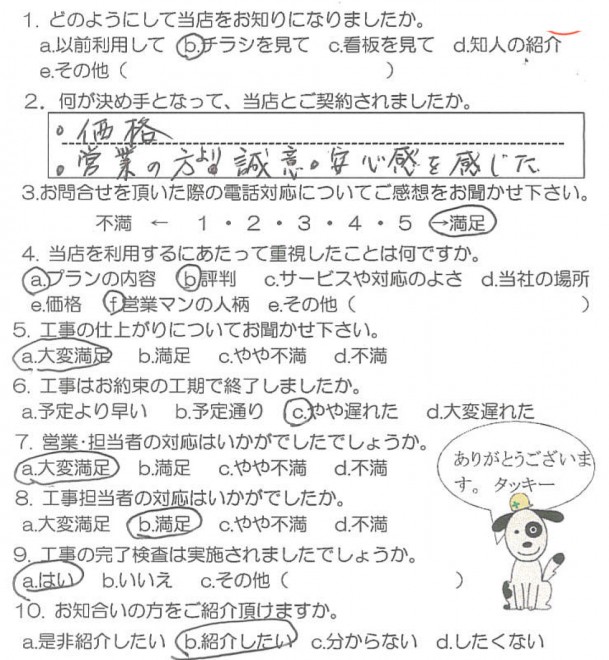 1. どのようにして当店をお知りになりましたか。
a.以前利用して b.チラシを見て c.看板を見て d.知人の紹介
e.その他（ ）
2. 何が決め手となって、当店とご契約されましたか。
。価格
。営業の方より誠意。安心感を感じた
3.お問合せを頂いた際の電話対応についてご感想をお聞かせ下さい。
不満 ← 1・2・3・4・5 →満足
4. 当店を利用するにあたって重視したことは何ですか。
a.プランの内容 b.評判 c.サービスや対応のよさ d.当社の場所
e.価格 f.営業マンの人柄 e.その他（ ）
5. 工事の仕上がりについてお聞かせ下さい。
a.大変満足 b.満足 c.やや不満 d.不満
6. 工事はお約束の工期で終了しましたか。
a.予定より早い b.予定通り c.やや遅れた d.大変遅れた
7. 営業・担当者の対応はいかがでしたでしょうか。
a.大変満足 b.満足 c.やや不満 d.不満
8. 工事担当者の対応はいかがでしたか。
a.大変満足 b.満足 c.やや不満 d.不満
9. 工事の完了検査は実施されましたでしょうか。
a.はい b.いいえ c.その他（ ）
10. お知合いの方をご紹介頂けますか。
a.是非紹介したい b.紹介したい c.分からない d.したくない
ありがとうございま
す。 タッキー